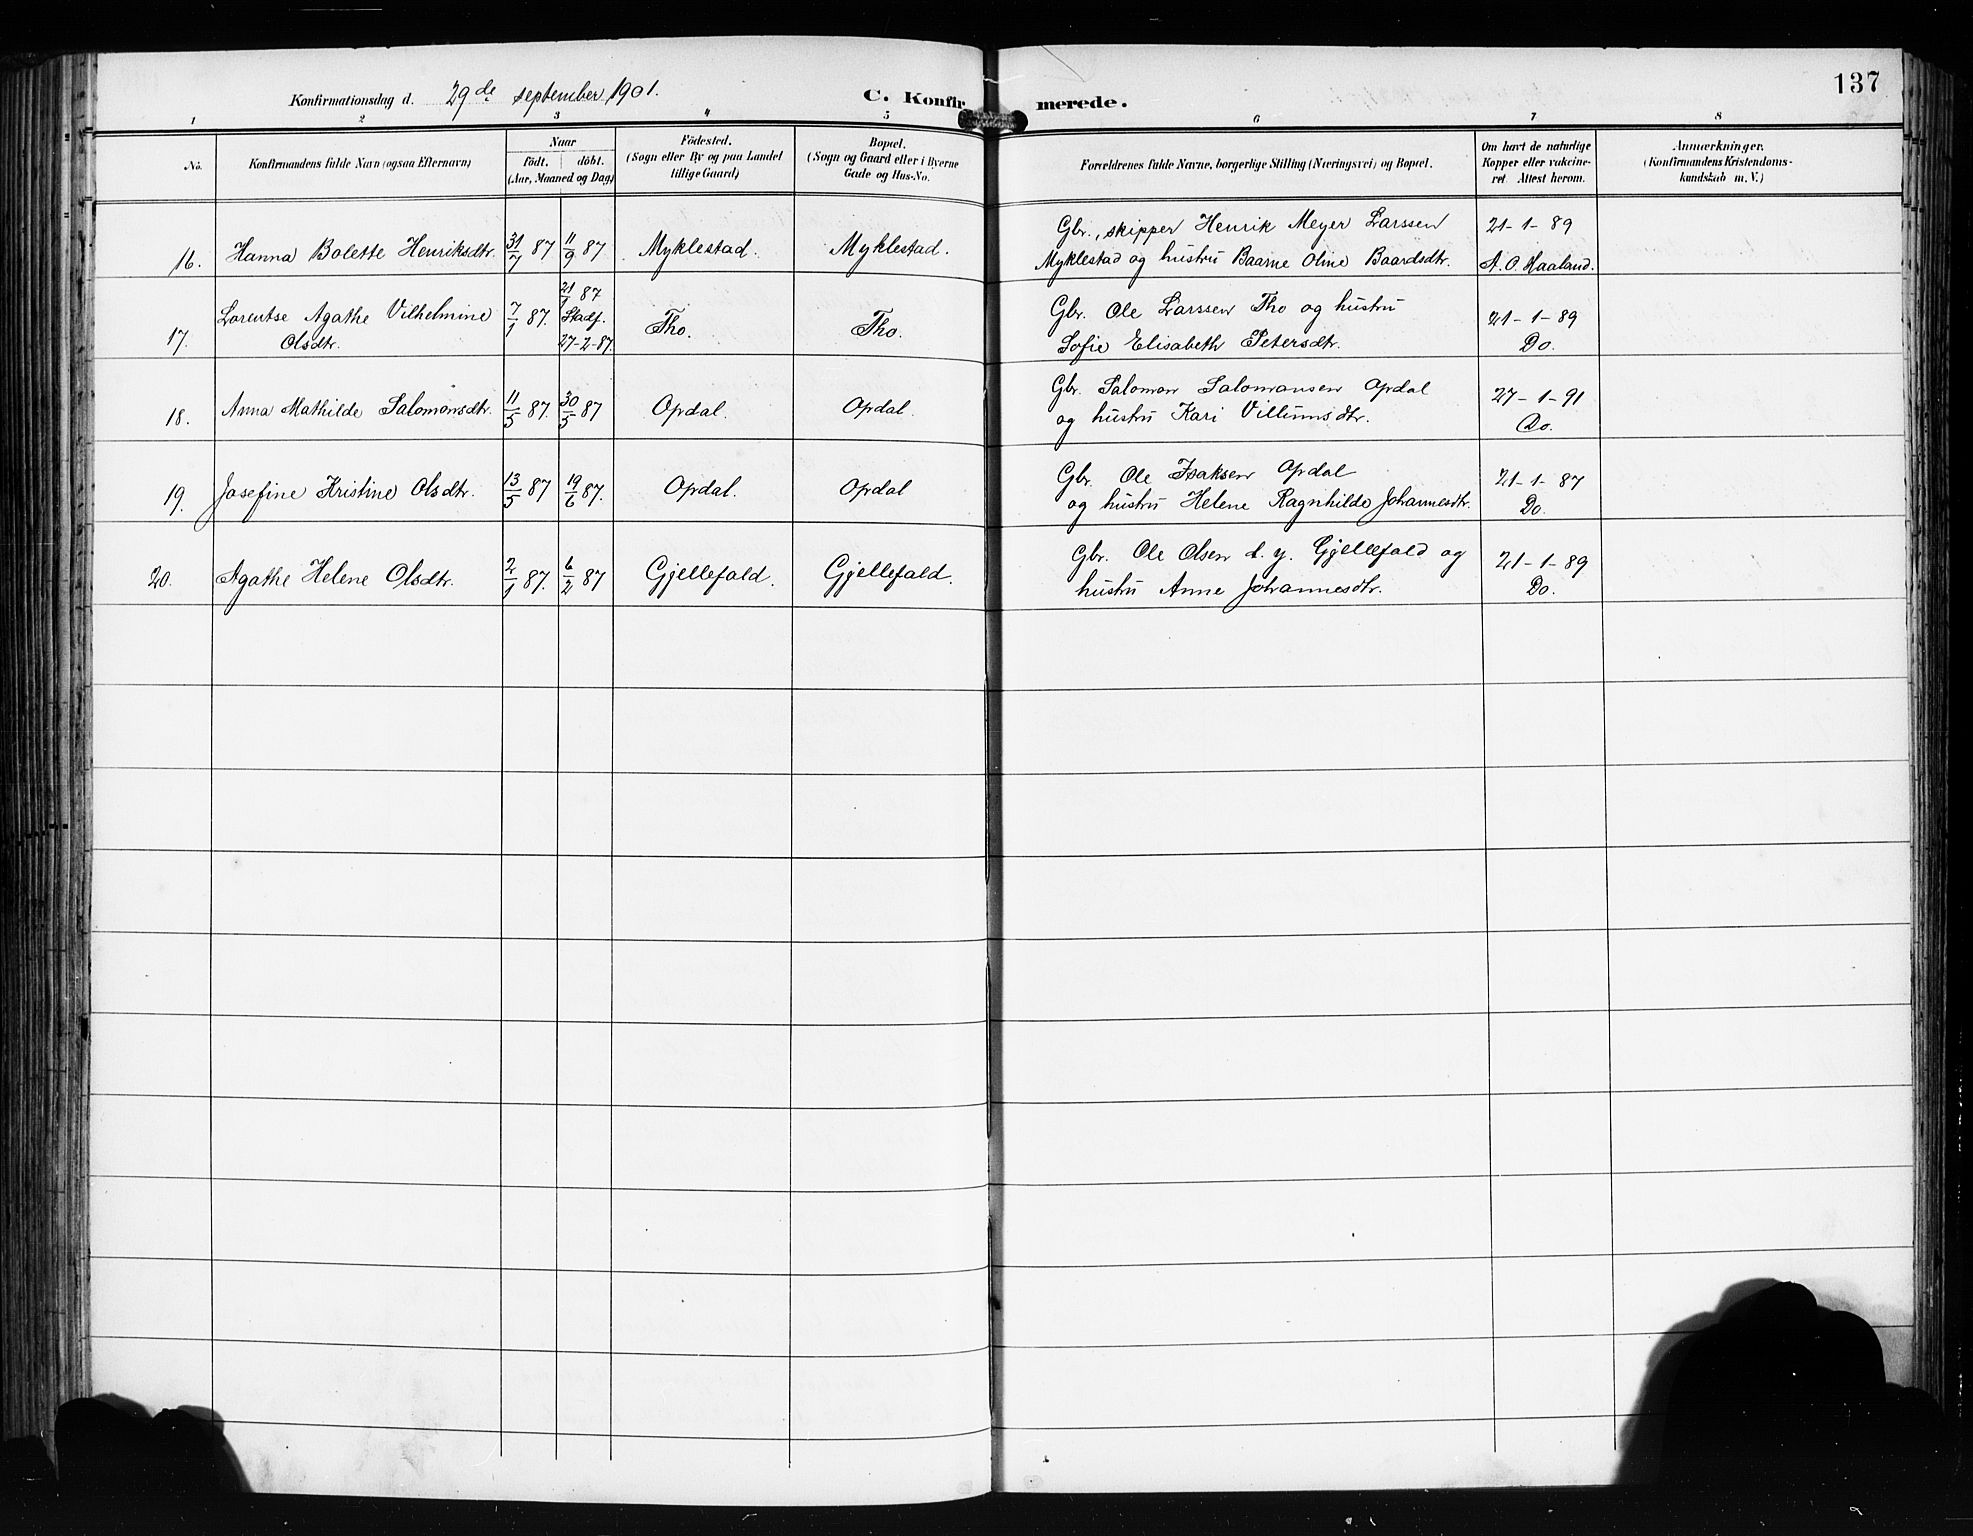 137
Konfirmationsdag d. 29de september 1901. C. Konfirmerede.
1 2 3 4 5 6 7 8
No. Konfirmandens fulde Navn (ogsaa Efternavn) Naar födt. döbt. (Aar, Maaned og Dag) Födested. (Sogn eller By og paa Landet tillige Gaard) Bopæl. (Sogn og Gaard eller i Byerne Gade og Hus-No. Forældrenes fulde Navne, borgerlige Stilling (Næringsvei) og Bopæl. Om havt de naturlige Kopper eller vakcineret. Attest herom. Anmærkninger. (Konfirmandens Kristendomskundskab m. V.)
16. Hanna Bolette Henriksdtr. 31/7 87 11/9 87 Myklestad. Myklestad. Gbr., skipper Henrik Meyer Larssen 21-1-89
Myklestad og hustru Baarne Oline Baardsdtr. A. O. Haaland.
17. Lorentse Agathe Vilhelmine 7/1 87. 21/1 87 Tho. Tho. Gbr. Ole Larssen Tho og hustru 21-1-89
Olsdtr. Stadf. 27-2-87. Sofie Elisabeth Petersdtr. Do.
18. Anna Mathilde Salomonsdtr. 11/5 87. 30/5 87 Opdal. Opdal. Gbr. Salomon Salomonsen Opdal 27-1-91
og hustru Kari Villumsdtr. Do.
19. Josefine Kristine Olsdtr. 13/5 87 19/6 87. Opdal. Opdal Gbr. Ole Isaksen Opdal 21-1-87
og hustru Helene Ragnhilde Johannesdtr. Do.
20. Agathe Helene Olsdtr. 2/1 87. 6/2 87 Gjellefald. Gjellefald. Gbr. Ole Olsen d. y. Gjellefald og 21-1-89
hustru Anne Johannesdtr. Do.